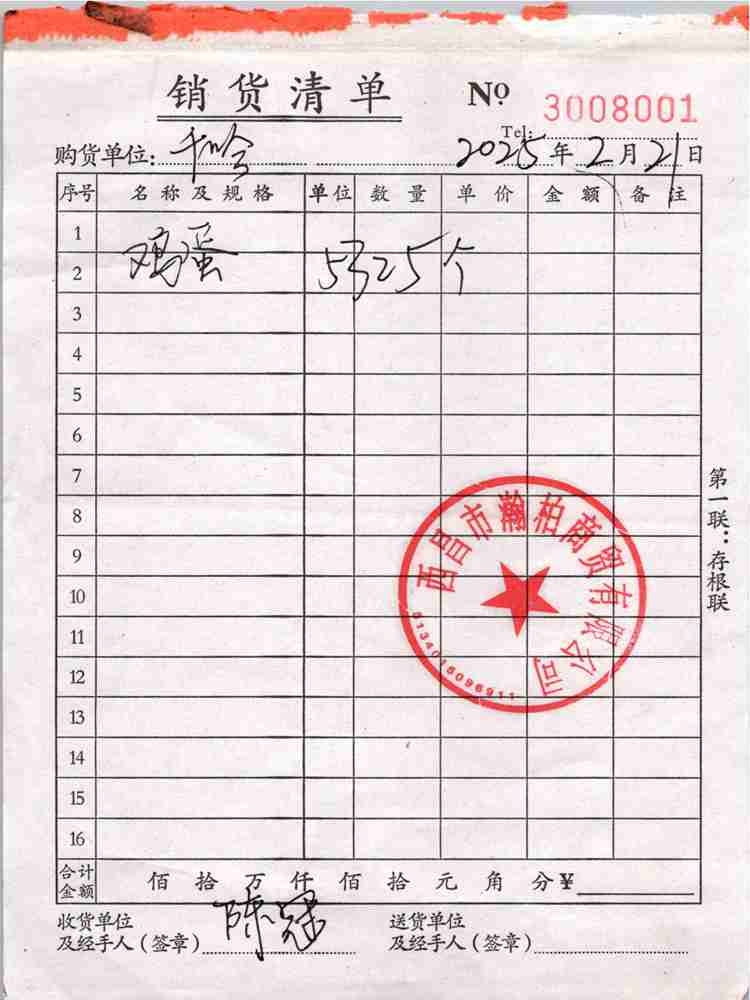 销货清单 Nº 3008001
Tel:
购货单位: 2025年2月21日
序号 名称及规格 单位 数量 单价 金额 备注
1
鸡蛋 5325个
2
3
4
5
6
7
8
9
10
11
12
13
14
15
16
合计金额 佰拾万仟佰拾元角分¥
收货单位 送货单位
及经手人(签章) 陈冠 及经手人(签章)
第一联:存根联
西昌市瀚柏商贸有限公司
5134015096911